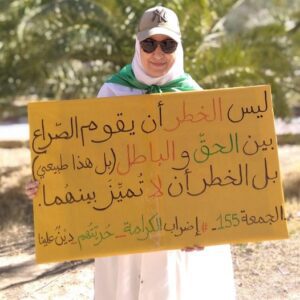 ليس الخطر أن يقوم الصّراع
بين الحقّ والباطل (بل هذا طبيعي)
بل الخطر أن لا نُميِّزَ بينهُما.
الجمعة 155_ #إضراب الكرامة_ حُريّتُهم_دَينٌ علينا